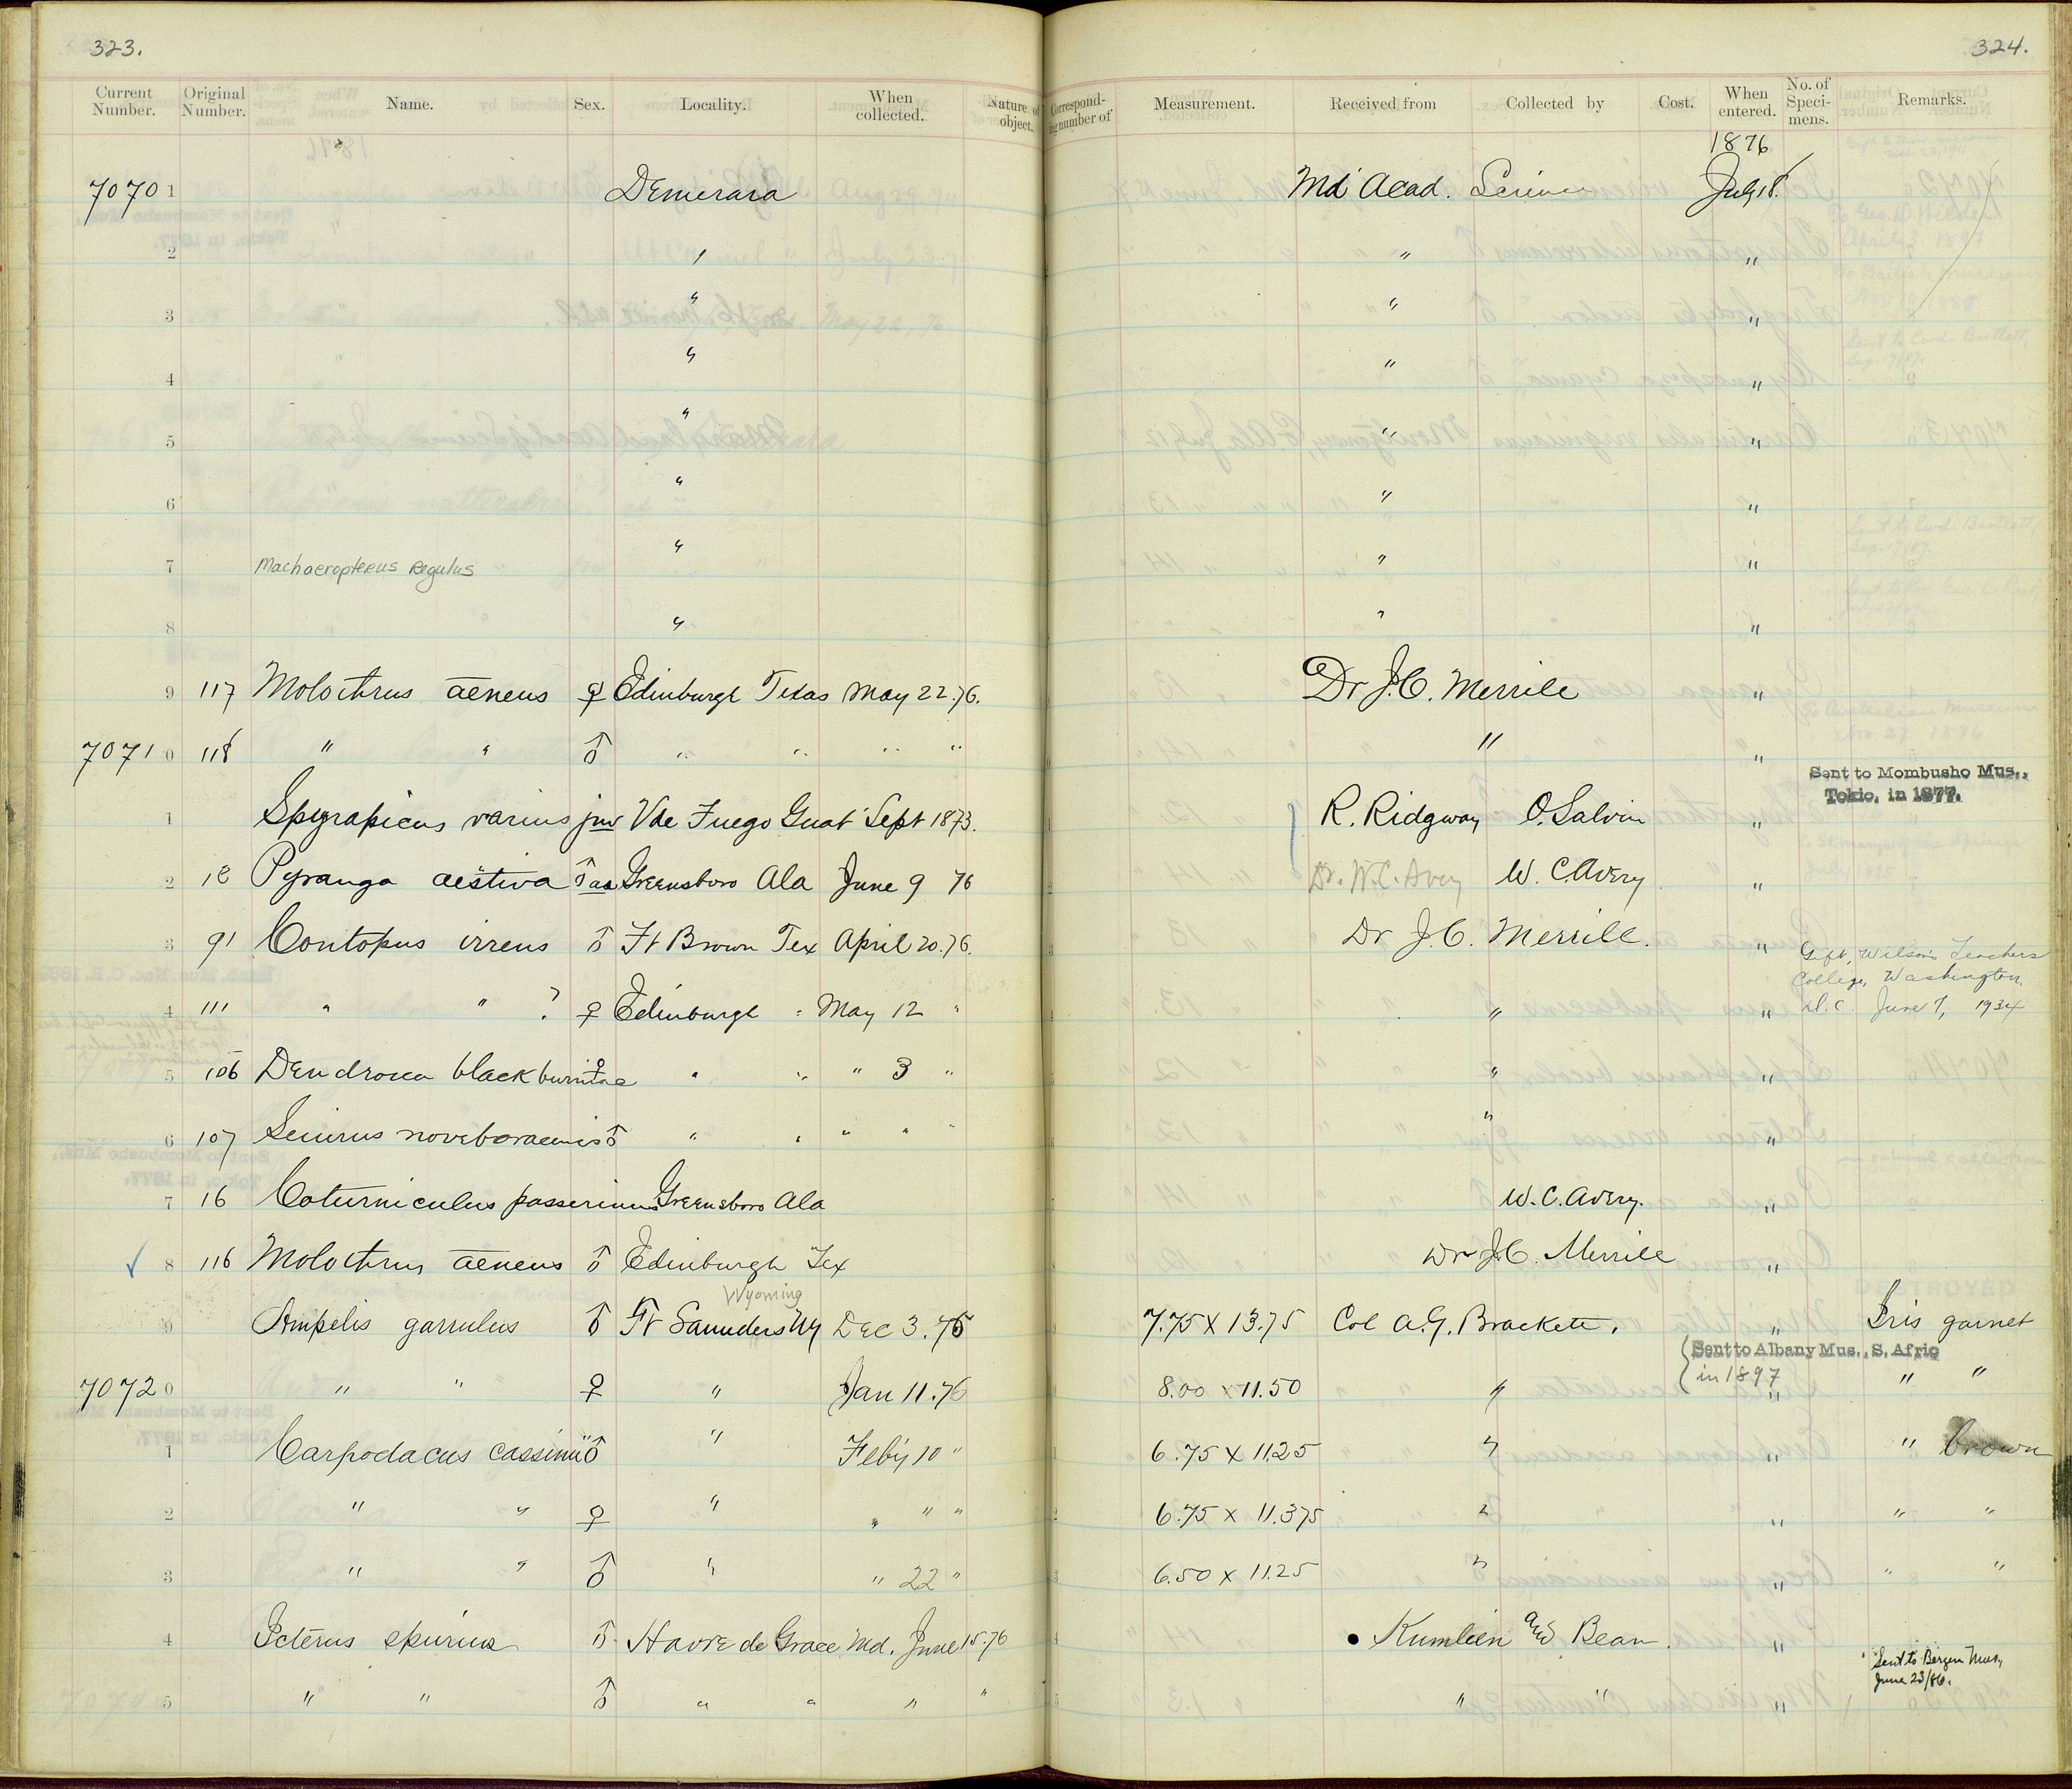 323. 324.
Current Number. Original Number. Name. Sex. Locality. When collected. Nature of object. Correspond-ing number of Measurement. Received from Collected by Cost. When entered. No. of Speci-mens. Remarks.
1876
7070 1 Demerara Md Acad. Science July 18.
2 " " "
3 " " "
4 " " "
5 " " "
6 " " "
7 Machaeropterus Regulus " " "
8 " " "
9 117 Molothrus aeneus ♀ Edinburgh Texas May 22.76. Dr J.C. Merrill "
7071 0 118 " " ♂ " " " " " "
Sent to Mombusho Mus., Tokio, in 1877.
1 Sphyrapicus varius juv V de Fuego Guat Sept 1873. R. Ridgway O. Salvin "
2 18 Pyranga aestiva ♂ ad Greensboro Ala June 9 76 Dr. W.C. Avery W. C. Avery "
3 91 Contopus virens ♂ Ft Brown Tex April 20.76. Dr J.C. Merrill. "
Gift, Wilson Teachers
College, Washington,
D.C. June 7, 1934
4 111 " " ? ♀ Edinburgh " May 12 " " "
5 106 Dendroeca blackburniae ♀ " " " 3 " " "
6 107 Seiurus noveboracensis ♂ " " " " " " "
7 16 Coturniculus passerinus Greensboro Ala W. C. Avery. "
8 116 Molothrus aeneus ♂ Edinburgh Tex Dr J.C. Merrill "
Wyoming
9 Ampelis garrulus ♂ Ft Saunders Wy Dec 3. 75 7.75 x 13.75 Col A.G. Brackett. " Iris garnet
Sent to Albany Mus., S. Afric
in 1897
7072 0 " " ♀ " Jan 11.76 8.00 x 11.50 " " " "
1 Carpodacus cassinii ♂ " Feby 10 " 6.75 x 11.25 " " " brown
2 " " ♀ " " " " 6.75 x 11.375 " " " "
3 " " ♂ " " 22 " 6.50 x 11.25 " " " "
4 Icterus spurius ♂ Havre de Grace Md. June 15.76 Kumlien and Bean. "
Sent to Bergen Mus,
June 23/86.
5 " " ♂ " " " " " " "